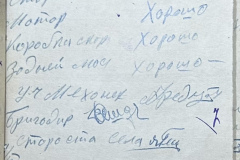 Мотор Хорошо
Коробка скор Хорошо
Задний мос Хорошо
Уч Механик
Бригадир
староста села